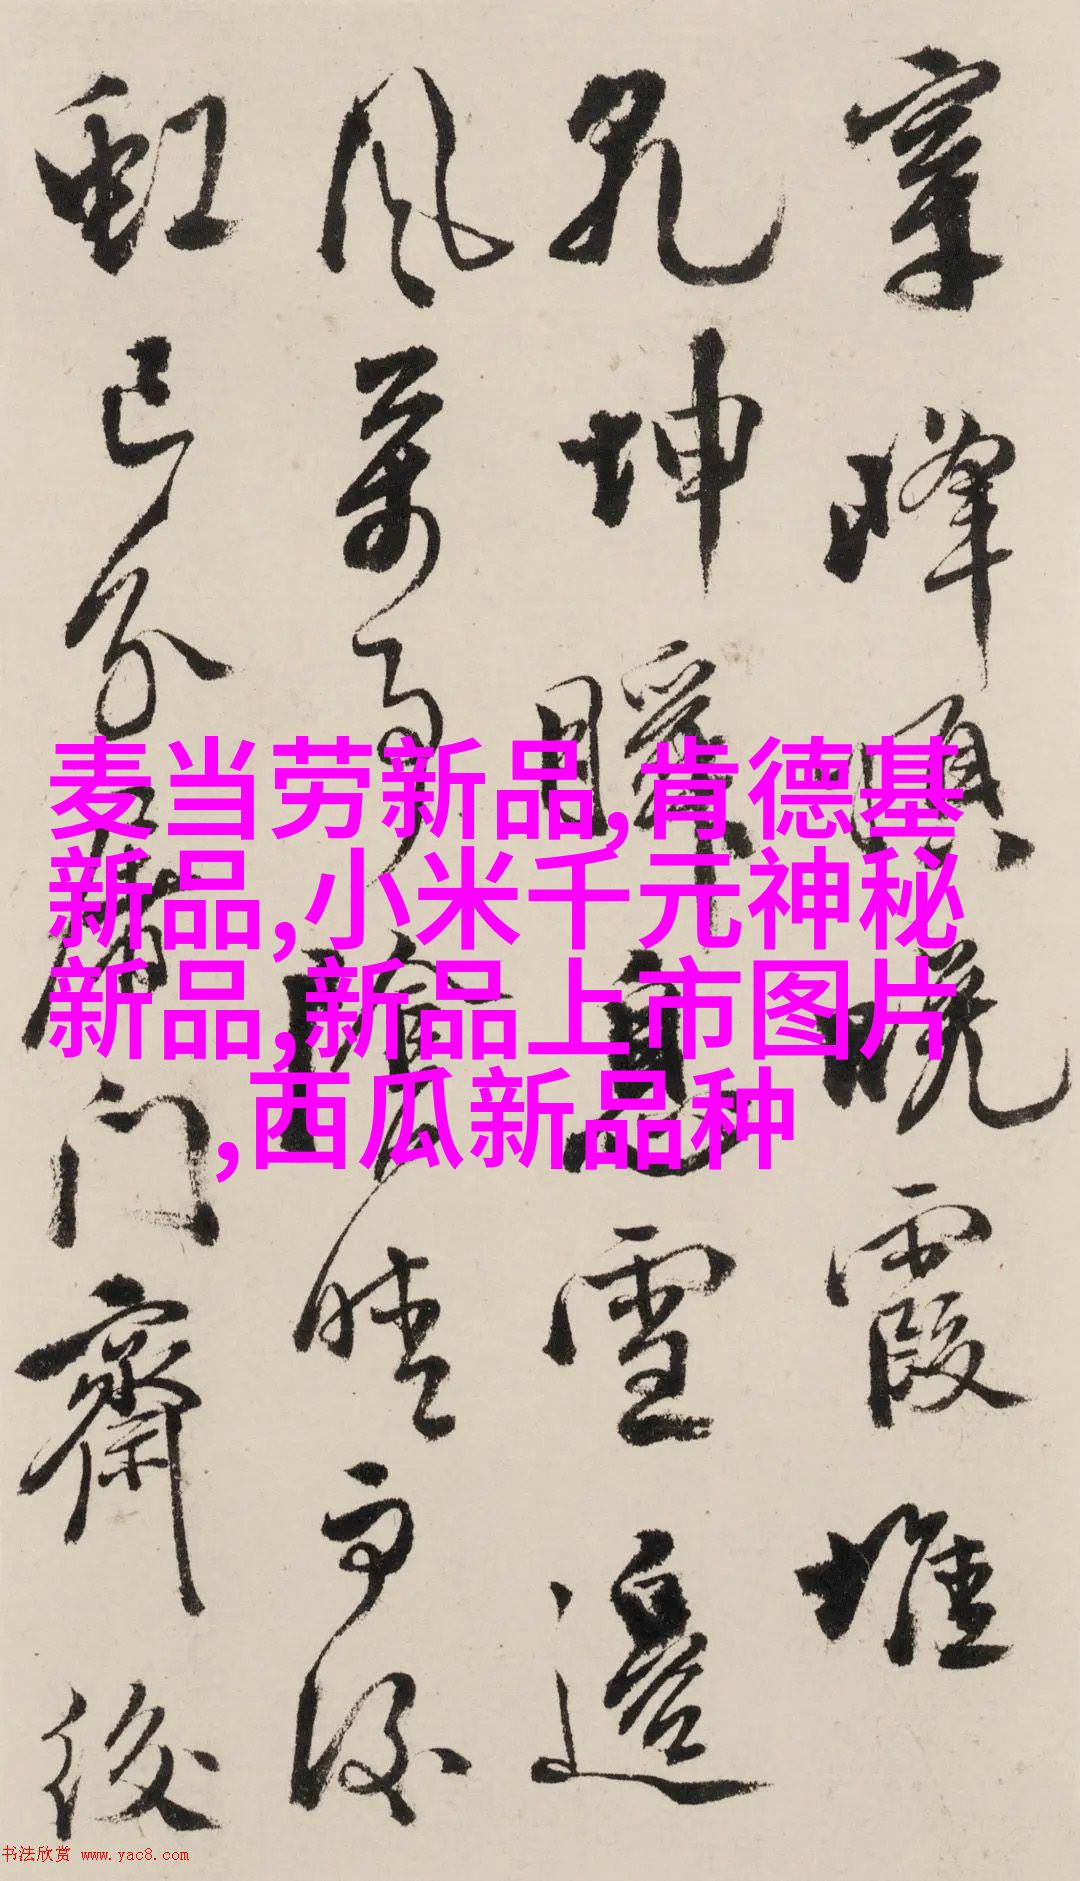 峰 晚霞堆
坤瞬息雪邊
風萬 陰晴
虹已分 門齋後
麦当劳新品,肯德基
新品,小米千元神秘
新品,新品上市图片
,西瓜新品种
书法欣赏 www.yac8.com